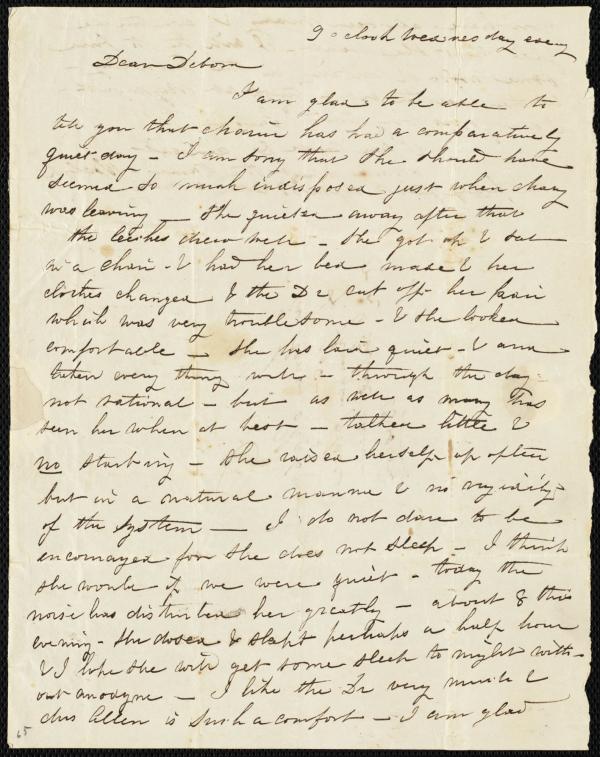 9 o clock Wednesday eveng
Dear Debora
I am glad to be able to
tell you that has had a comparatively
quiet day - I am sorry that she should have
seemed so much indisposed just when
was leaving - she quieted away after that
the leeches drew well - she got up & sat
in a chair - & had her bed made & her
clothes changed & the Dr cut off her hair
which was very troublesome - & she looked
comfortable - she has lain quiet - & and
taken every thing well - through the day
not rational - but as well as has
seen her when at best - talked little &
no starting - she raised herself up often
but in a natural manner & no rigidity
of the system - I do not dare to be
encouraged for she does not sleep - I think
she would if we were quiet - today the
noise has disturbed her greatly - about 8 this
evening - she dosed & slept perhaps a half hour
& I hope she will get some sleep to night with-
out anodyne - I like the Dr very much &
Allen is such a comfort - I am glad
65